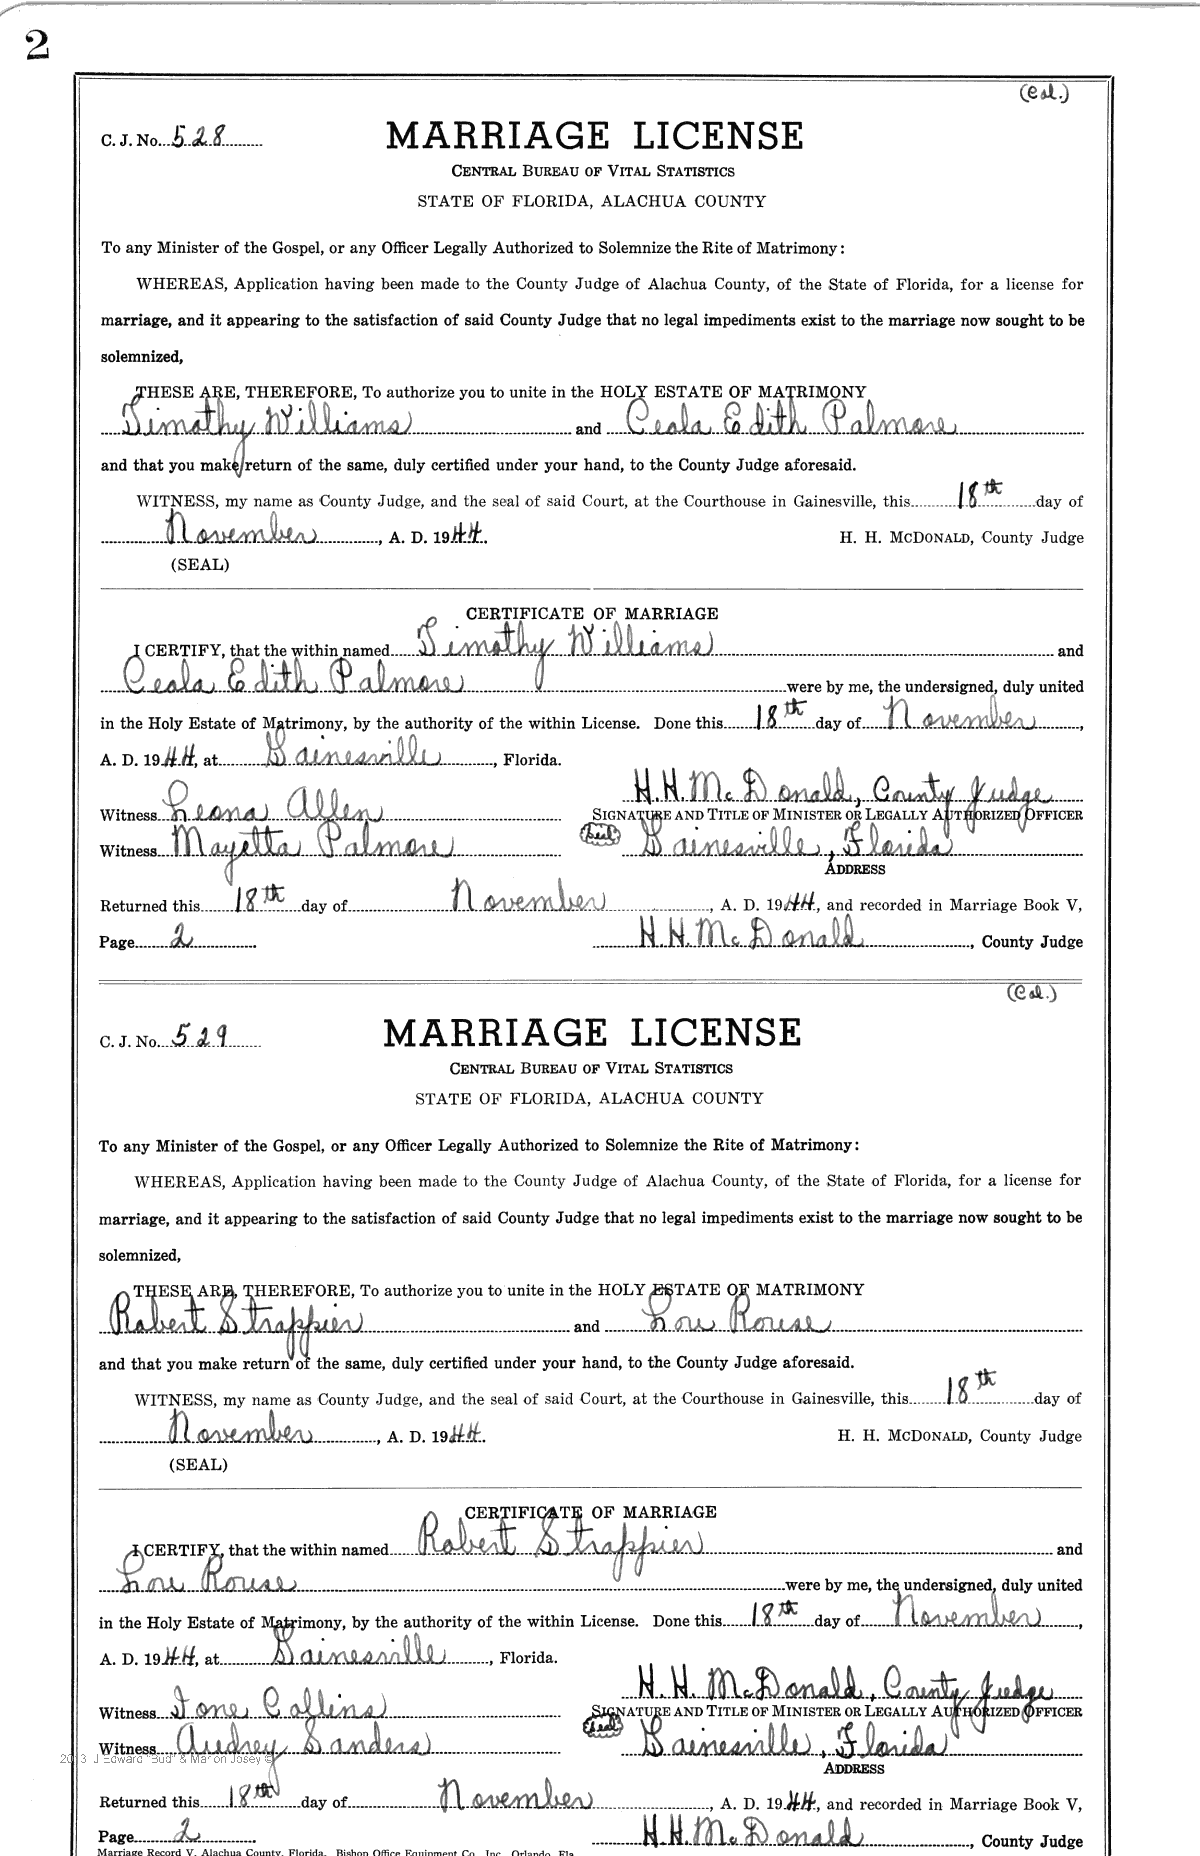 2
(Col.)
C. J. No. 528
MARRIAGE LICENSE
CENTRAL BUREAU OF VITAL STATISTICS
STATE OF FLORIDA, ALACHUA COUNTY
To any Minister of the Gospel, or any Officer Legally Authorized to Solemnize the Rite of Matrimony:
WHEREAS, Application having been made to the County Judge of Alachua County, of the State of Florida, for a license for
marriage, and it appearing to the satisfaction of said County Judge that no legal impediments exist to the marriage now sought to be
solemnized,
THESE ARE, THEREFORE, To authorize you to unite in the HOLY ESTATE OF MATRIMONY
Timothy Williams and Ceola Edith Palmore
and that you make return of the same, duly certified under your hand, to the County Judge aforesaid.
WITNESS, my name as County Judge, and the seal of said Court, at the Courthouse in Gainesville, this 18th day of
November, A. D. 1944. H. H. MCDONALD, County Judge
(SEAL)
CERTIFICATE OF MARRIAGE
I CERTIFY, that the within named Timothy Williams and
Ceola Edith Palmore were by me, the undersigned, duly united
in the Holy Estate of Matrimony, by the authority of the within License. Done this 18th day of November,
A. D. 1944, at Gainesville, Florida.
H. H. McDonald, County Judge
Witness Leona Allen SIGNATURE AND TITLE OF MINISTER OR LEGALLY AUTHORIZED OFFICER
Witness Mayetta Palmore (Seal) Gainesville, Florida
ADDRESS
Returned this 18th day of November, A. D. 1944, and recorded in Marriage Book V,
Page 2 H. H. McDonald, County Judge
(Col.)
C. J. No. 529
MARRIAGE LICENSE
CENTRAL BUREAU OF VITAL STATISTICS
STATE OF FLORIDA, ALACHUA COUNTY
To any Minister of the Gospel, or any Officer Legally Authorized to Solemnize the Rite of Matrimony:
WHEREAS, Application having been made to the County Judge of Alachua County, of the State of Florida, for a license for
marriage, and it appearing to the satisfaction of said County Judge that no legal impediments exist to the marriage now sought to be
solemnized,
THESE ARE, THEREFORE, To authorize you to unite in the HOLY ESTATE OF MATRIMONY
Robert Strappier and Lou Rouse
and that you make return of the same, duly certified under your hand, to the County Judge aforesaid.
WITNESS, my name as County Judge, and the seal of said Court, at the Courthouse in Gainesville, this 18th day of
November, A. D. 1944. H. H. MCDONALD, County Judge
(SEAL)
CERTIFICATE OF MARRIAGE
I CERTIFY, that the within named Robert Strappier and
Lou Rouse were by me, the undersigned, duly united
in the Holy Estate of Matrimony, by the authority of the within License. Done this 18th day of November,
A. D. 1944, at Gainesville, Florida.
H. H. McDonald, County Judge
Witness Ione Collins SIGNATURE AND TITLE OF MINISTER OR LEGALLY AUTHORIZED OFFICER
Witness Audrey Sanders (Seal) Gainesville, Florida
2013 J Edward "Bud" & Marion Josey ©
ADDRESS
Returned this 18th day of November, A. D. 1944, and recorded in Marriage Book V,
Page 2 H. H. McDonald, County Judge
Marriage Record V, Alachua County, Florida. Bishop Office Equipment Co., Inc., Orlando, Fla.